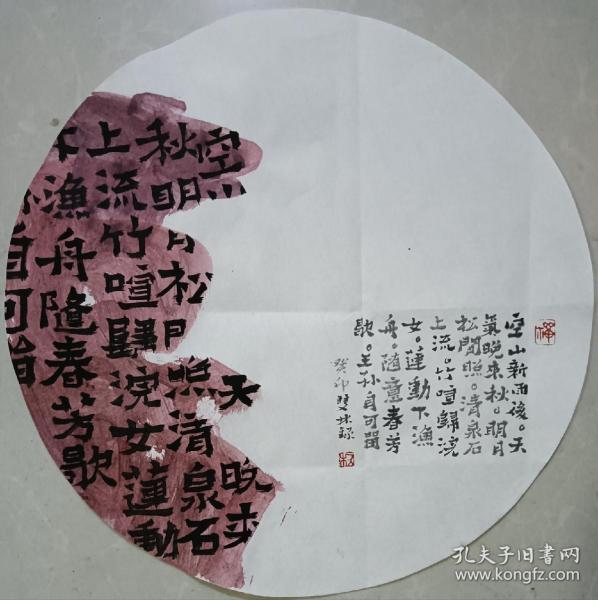 天
晚来
空山
秋明月松間照清泉石
上流竹喧歸浣女蓮動
下漁舟隨春芳歇
自可
空山新雨後。天
氣晚来秋。明月
松間照。清泉石
上流。竹喧歸浣
女。蓮動下漁
舟。隨意春芳
歇。王孙自可留
癸卯雙林録
孔夫子旧书网
www.kongfz.com